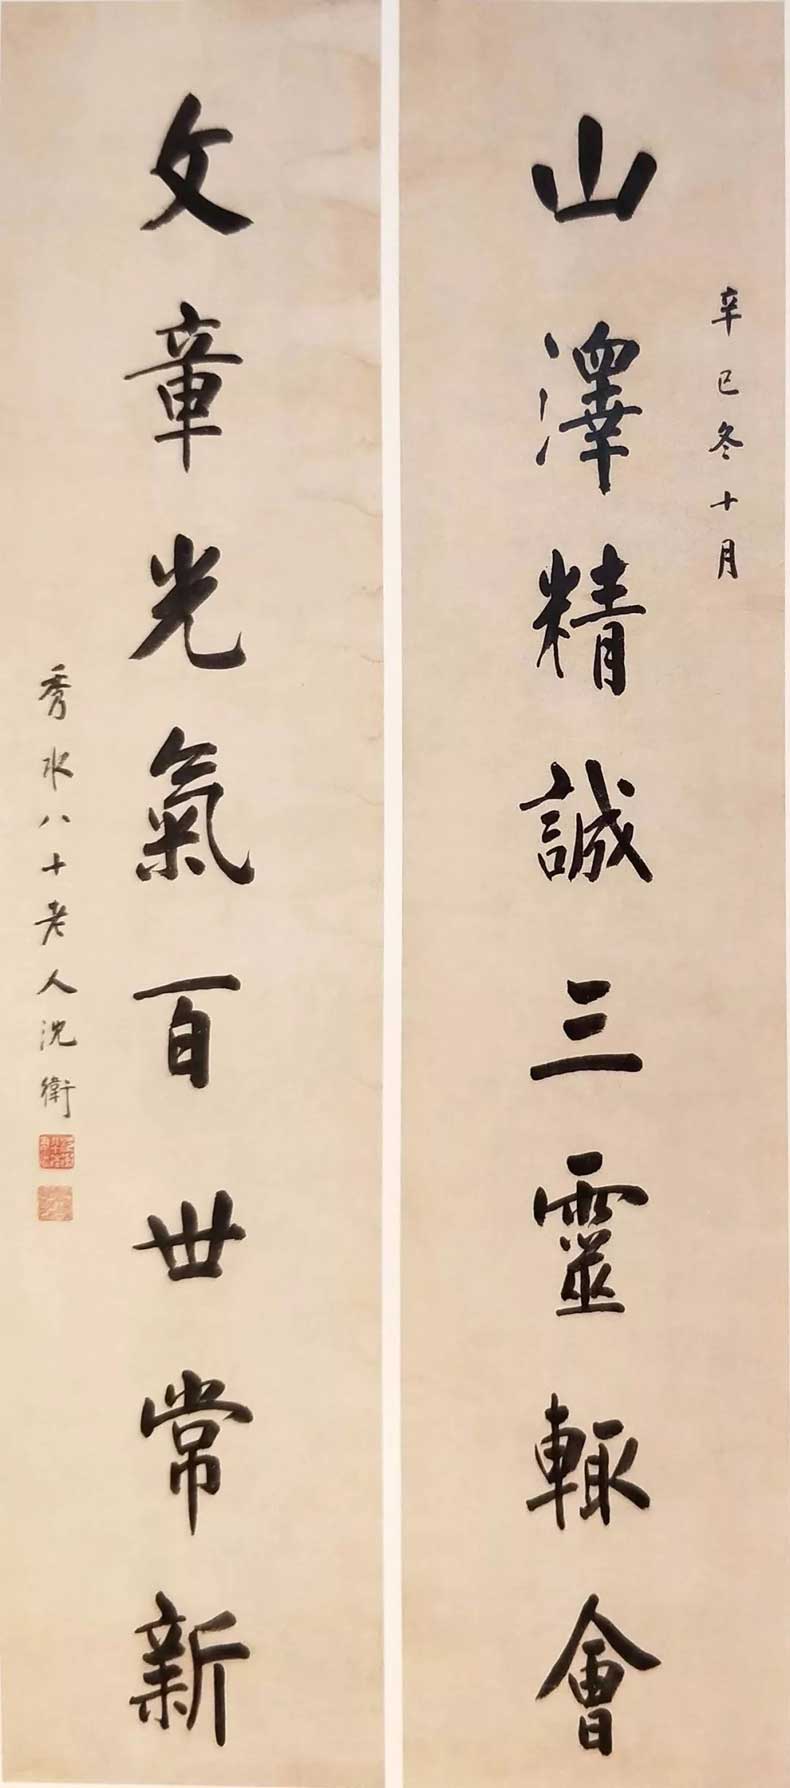 辛巳冬十月
山澤精誠三靈輙會
文章光氣百世常新
秀水八十老人沈衛